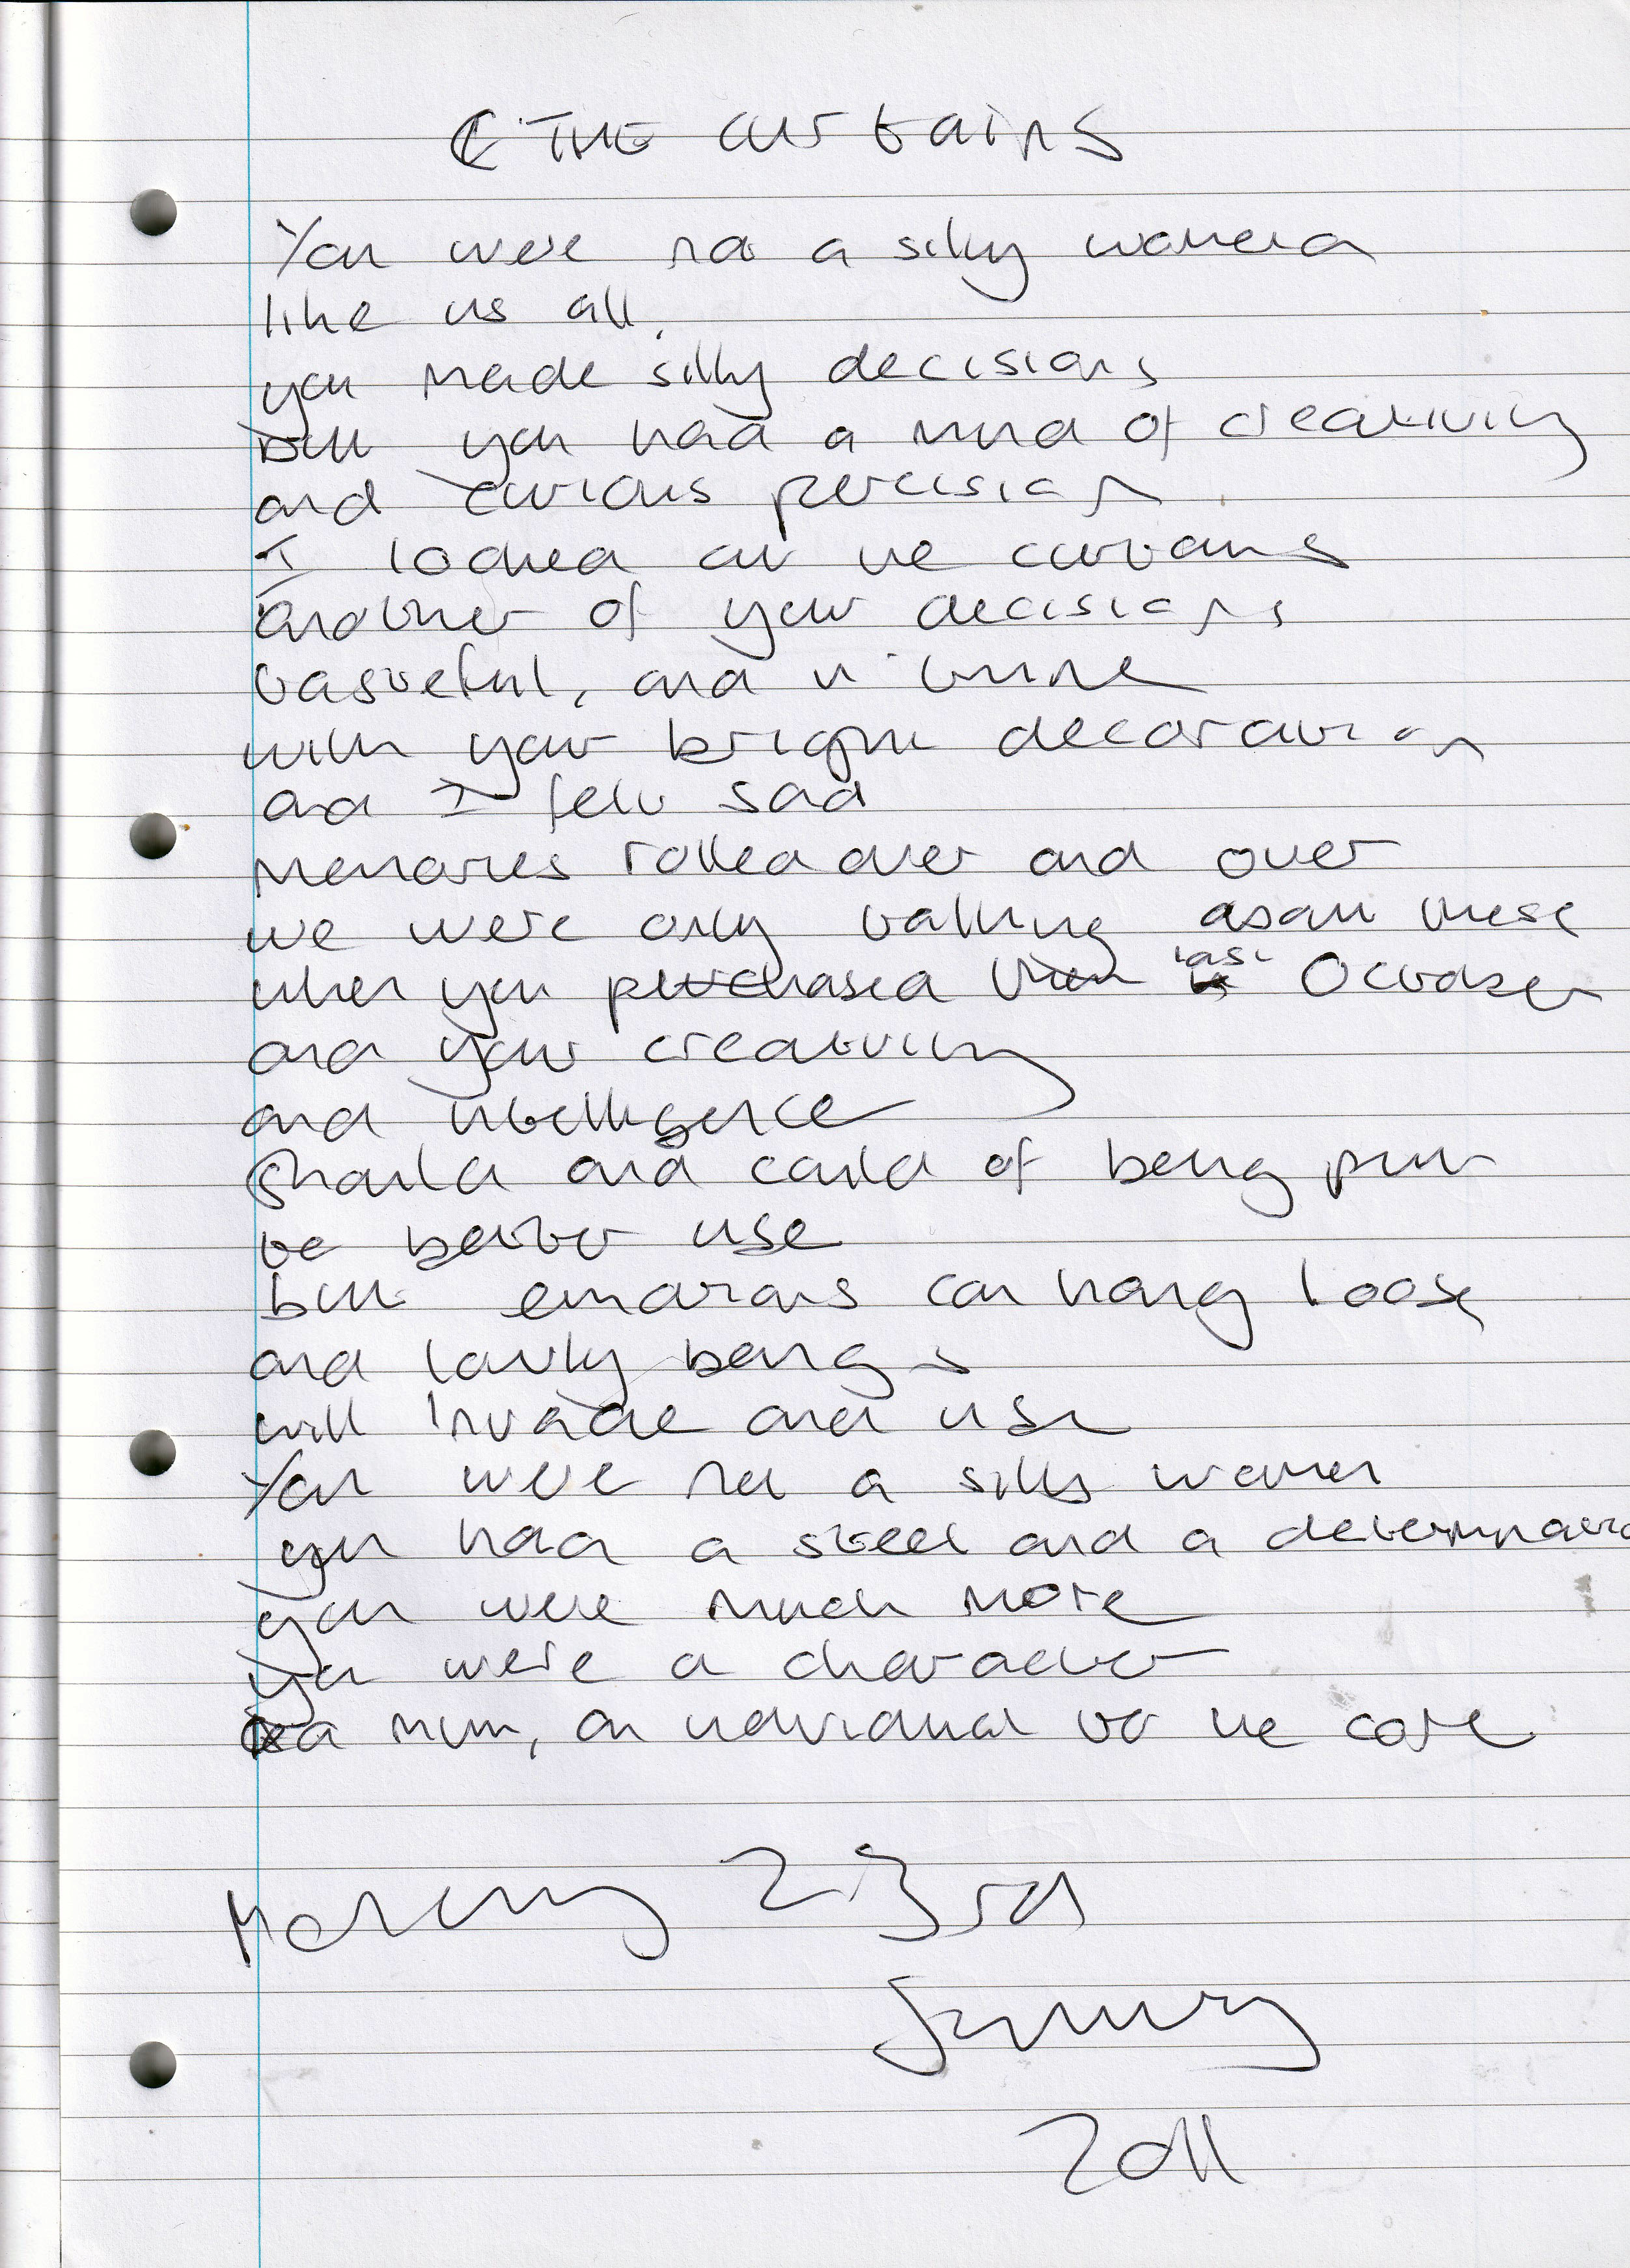 THE curtains
You were not a silly woman
like us all.
you made silly decisions
but you had a mind of creativity
and curious percision
I looked at the curtains
another of your decisions
tasteful, and in tune
with your bright decoration
and I felt sad
memories rolled over and over
we were only talking about these
when you purchased them last October
and your creativity
and intelligence
should and could of being put
to better use
but emotions can hang loose
and lowly beings
will invade and use
You were not a silly woman
you had a steel and a determination
you were much more
you were a character
a mum, an individual to the core
23rd
January
2011